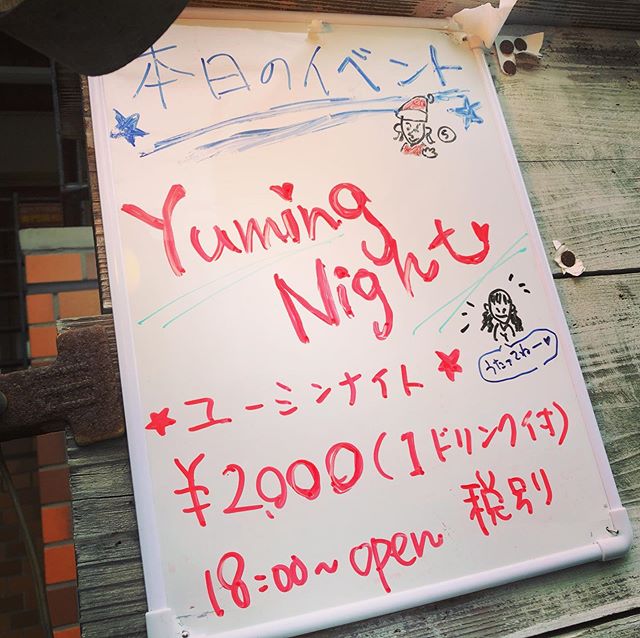 本日のイベント
Yuming
Night
うたってねー
ユーミンナイト
¥2,000(1ドリンク付)
税別
18:00~open